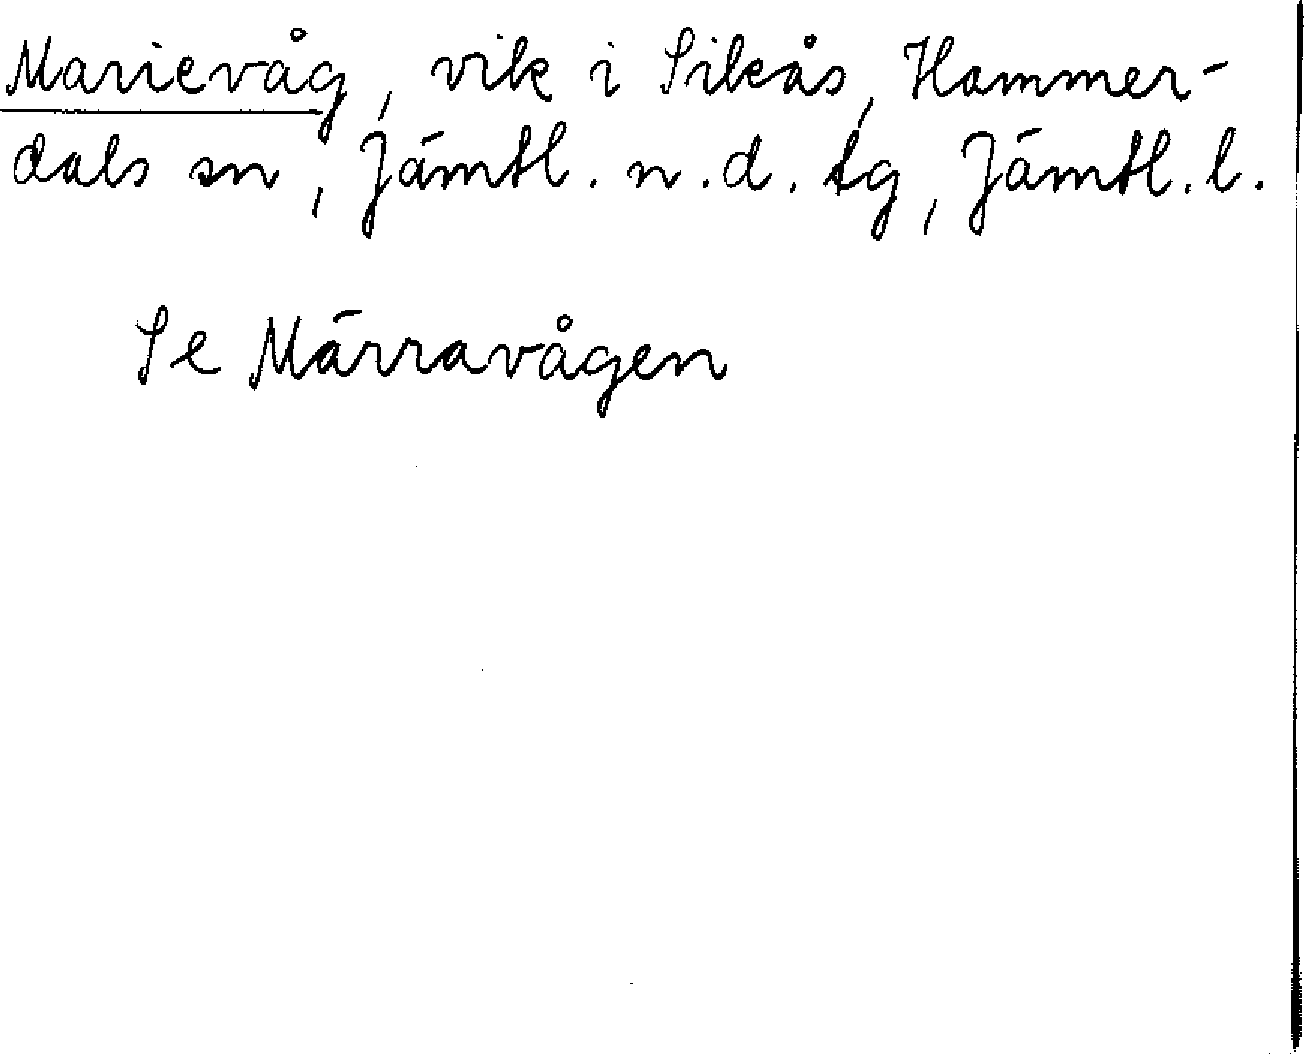 Marievåg, vik i Sikås, Hammer-
dals sn, Jämtl. n. d. tg, Jämtl. l.
Se Märravågen